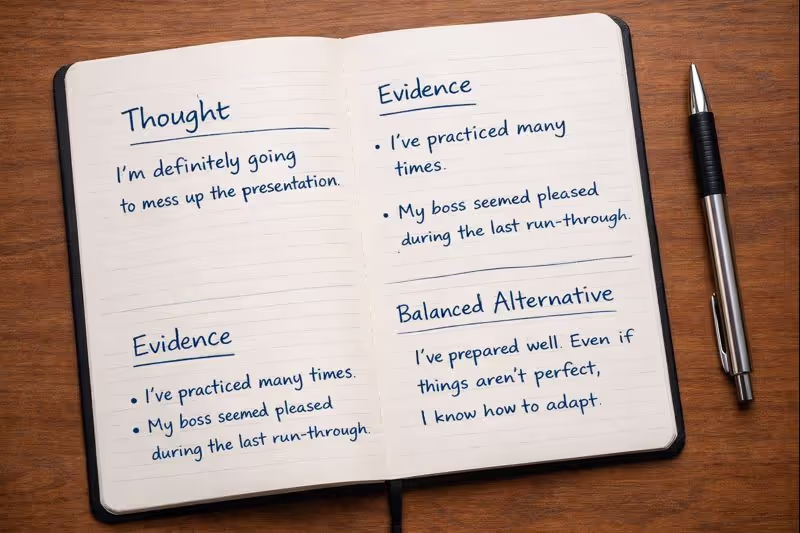 Thought
I'm definitely going
to mess up the presentation.
Evidence
• I've practiced many times.
• My boss seemed pleased
during the last run-through.
Evidence
• I've practiced many
times.
• My boss seemed pleased
during the last run-through.
Balanced Alternative
I've prepared well. Even if
things aren't perfect,
I know how to adapt.